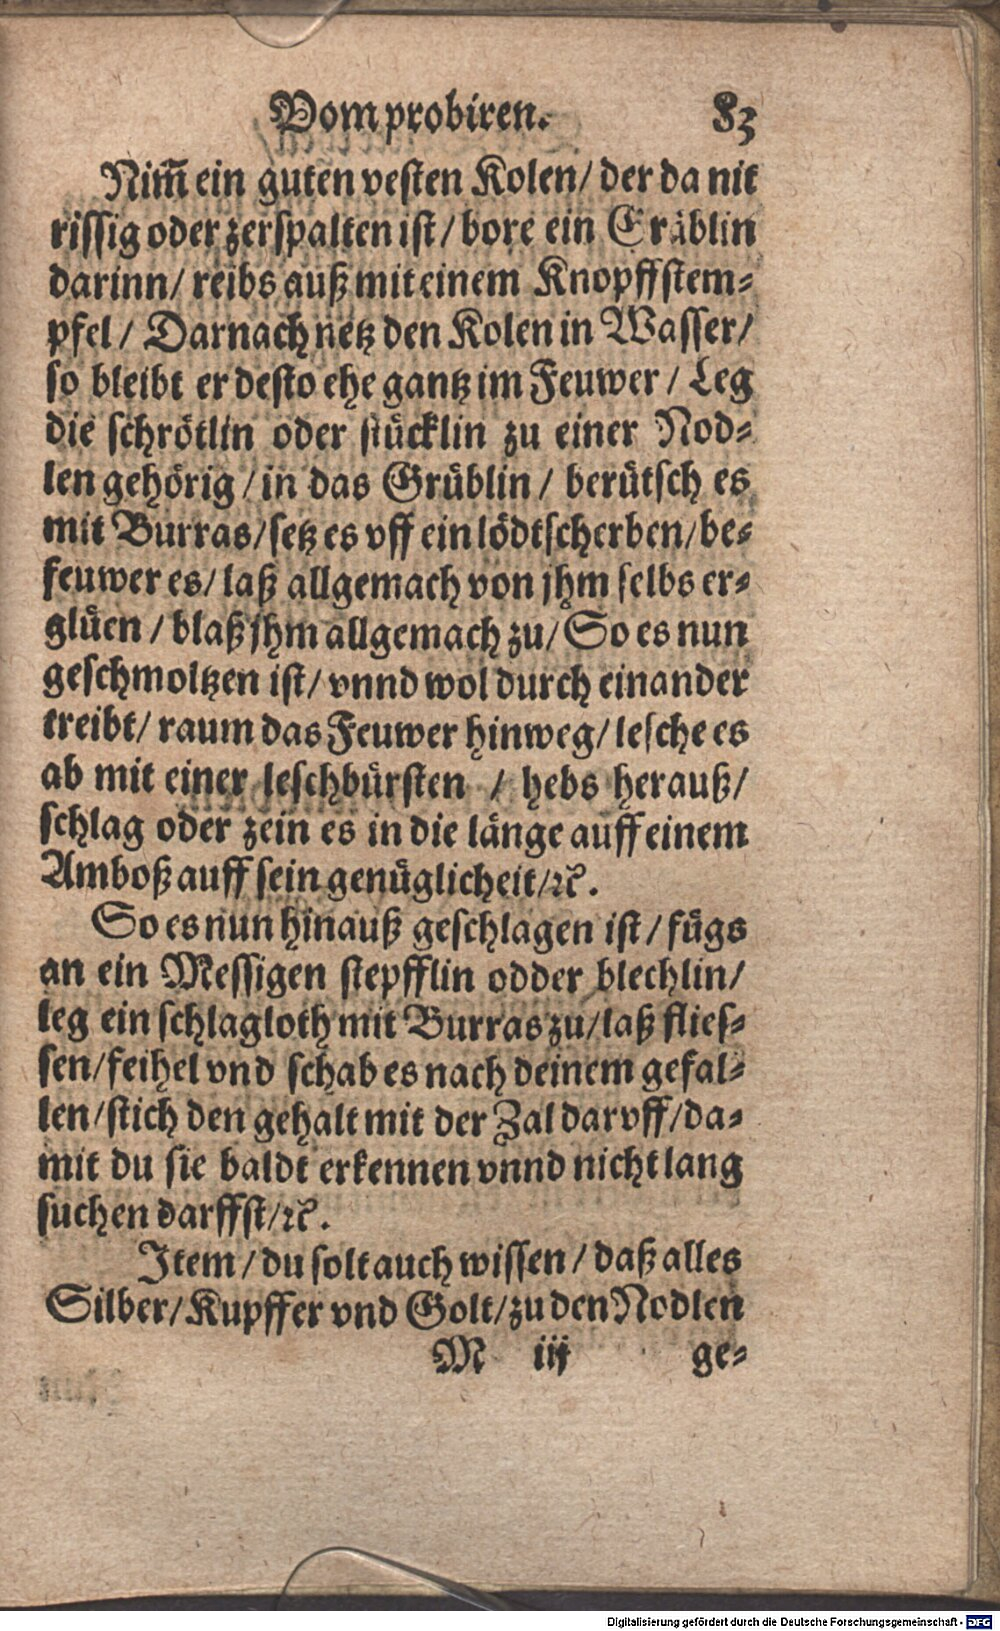 Vom probiren. 83
Nim̄ ein guten vesten Kolen / der da nit
rissig oder zerspalten ist / bore ein Gräblin
darinn / reibs auß mit einem Knopffstem⸗
pfel / Darnach netz den Kolen in Wasser /
so bleibt er desto ehe gantz im Feuwer / Leg
die schrötlin oder stücklin zu einer Nod⸗
len gehörig / in das Grüblin / berütsch es
mit Burras / setz es vff ein lödtscherben / be⸗
feuwer es / laß allgemach von jhm selbs er⸗
glüen / blaß jhm allgemach zu / So es nun
geschmoltzen ist / vnnd wol durch einander
treibt / raum das Feuwer hinweg / lesche es
ab mit einer leschbürsten / hebs herauß /
schlag oder zein es in die länge auff einem
Amboß auff sein genüglicheit / ꝛc.
So es nun hinauß geschlagen ist / fügs
an ein Messigen stepfflin odder blechlin /
leg ein schlagloth mit Burras zu / laß flies⸗
sen / feihel vnd schab es nach deinem gefal⸗
len / stich den gehalt mit der Zal darvff / da⸗
mit du sie baldt erkennen vnnd nicht lang
suchen darffst / ꝛc.
Item / du solt auch wissen / daß alles
Silber / Kupffer vnd Golt / zu den Nodlen
M iij ge⸗
Digitalisierung gefördert durch die Deutsche Forschungsgemeinschaft - DFG